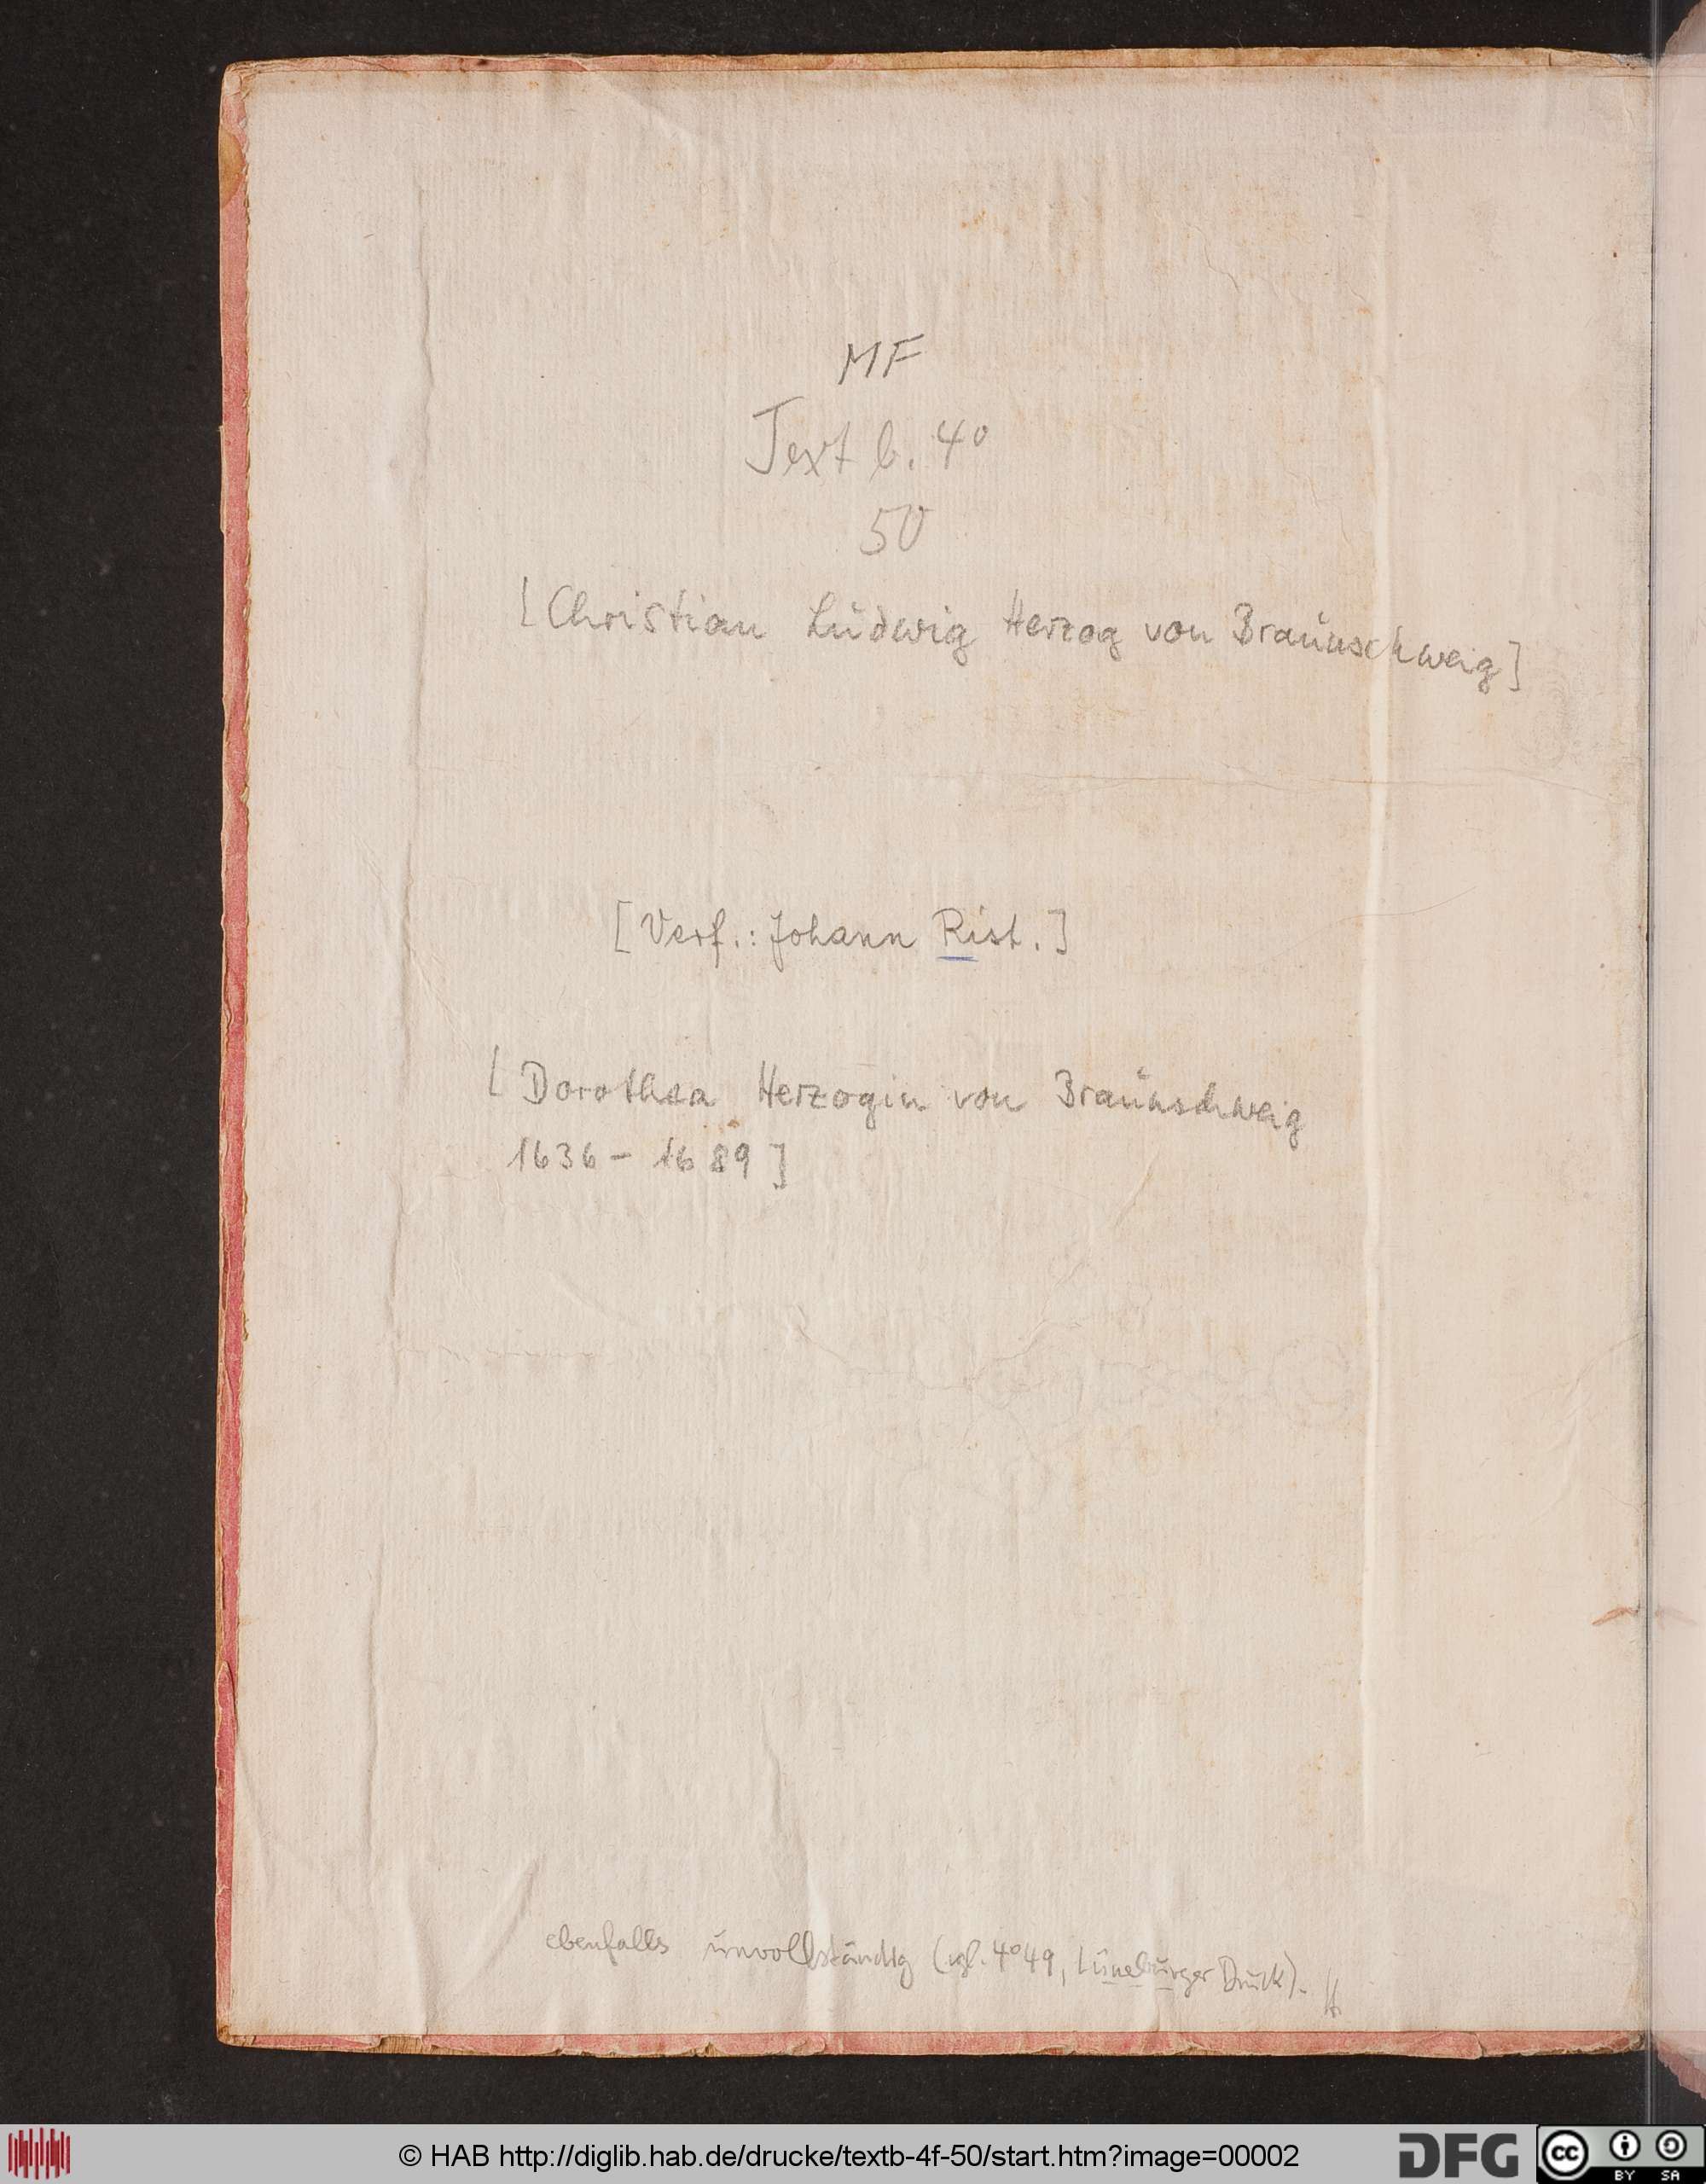 MF
Textb. 4°
50
[Christian Ludwig Herzog von Braunschweig]
[Verf.: Johann Rist.]
[Dorothea Herzogin von Braunschweig
1636 - 1689]
ebenfalls unvollständig (vgl. 4° 49, Lüneburger Druck).
© HAB http://diglib.hab.de/drucke/textb-4f-50/start.htm?image=00002
DFG
cc BY SA